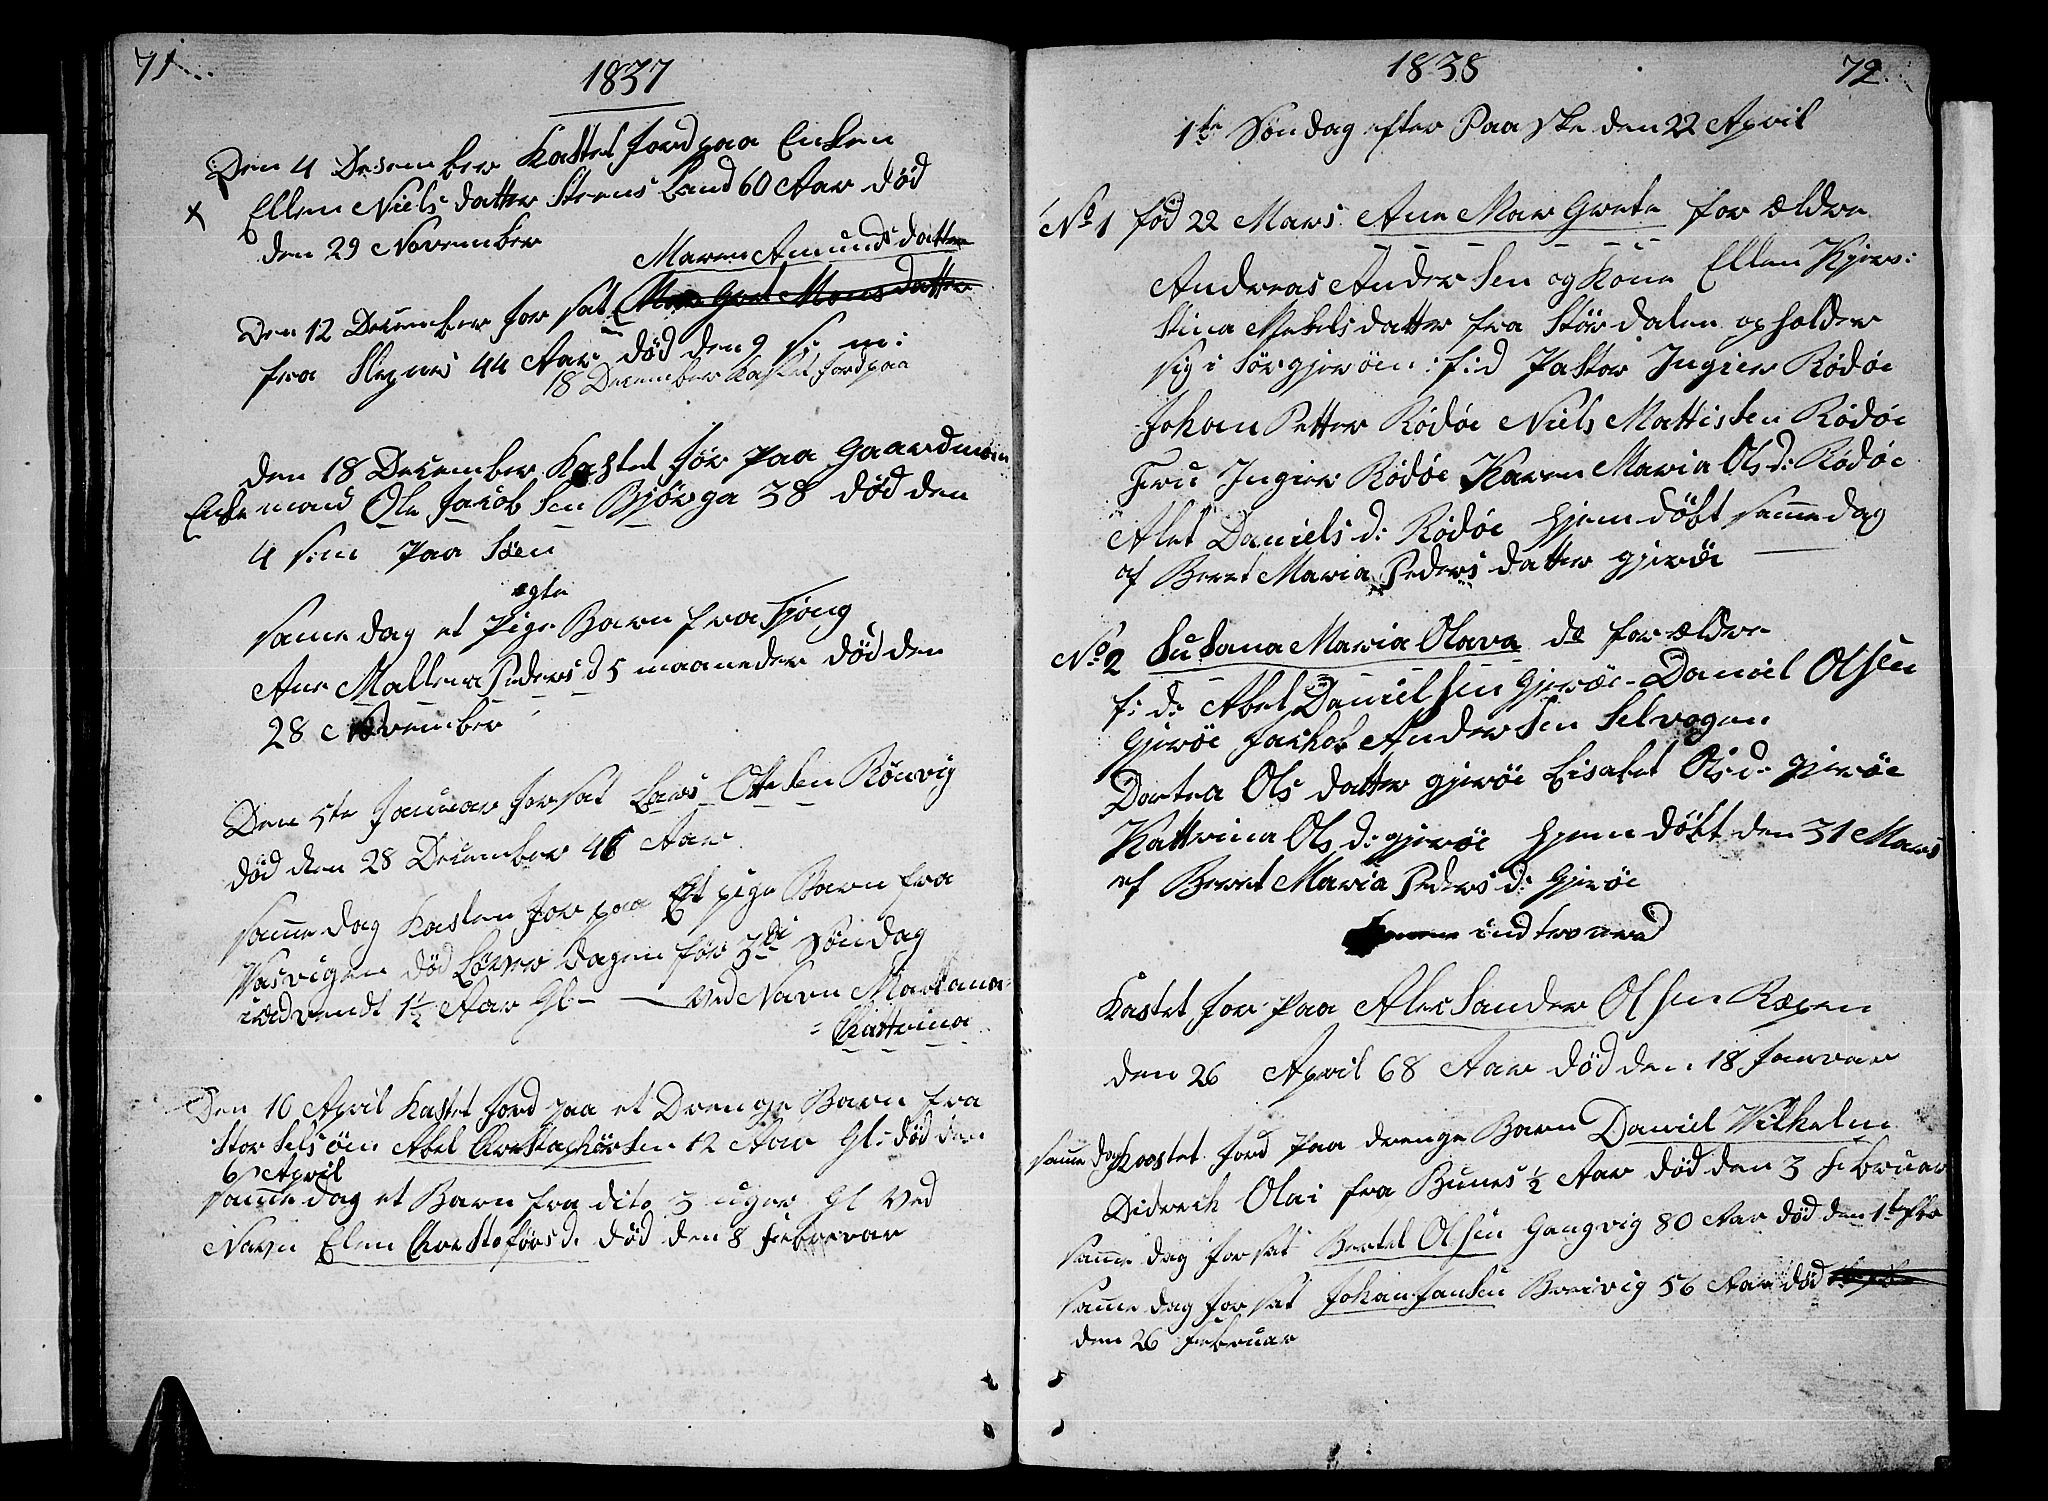 71
1837
Den 4 Desember Kastet Jord paa Enken
Ellen Niels datter Steens Land 60 Aar død
x
den 29 November
Maren Amunds datter
Den 12 December for sat Monsdatter
fra Slegnes 44 Aar død den 9 s: m:
18 December Kastet Jord paa
Den 18 December Kastet Jor paa Gaardman
Enkemand Ole Jacob Sen Bjørga 38 død den
4 s:m paa Søen
egte
samme dag et Pige Barn fra Tjong
Ane Mallena Peders d 5 maaneder død den
28 November
Den 5te Januar for sat Lars Otte Sen Rønvig
død den 28 December 46 Aar
samme dag Kasten Jor paa Et pige Barn fra
Vasvigen død Løver dagen før 3de Søndag
i advendt 1½ Aar Gl— — ved Navn Martana
= Kattrina
Den 10 April Kastet Jord paa et Drenge Barn fra
Stor Selsøen Abel Chrestophørsen 12 Aar Gl: død den
6 April
samme dag et Barn fra dito 3 uger Gl ved
Navn Elen Chrestoførs d. død den 8 Februar
1838
72
1te Søndag efter Paaske den 22 April
No 1 fød 22 Mars Ane Mar Grete for ældre
Andreas Ander Sen og Kone Ellen Kjers:
tina Mekels datter fra Stør dalen opholder
sig i Sørgjerøen: f:d Pastor Ingier Rödöe
Johan Petter Rödöe Niels Mattis Sen Rödöe
Fru Ingier Rödöe Karen Maria Ols d: Rödöe
Alet Daniels d: Rödöe hjemdøbt samme dag
af Beret Maria Peders datter gjerøe
No 2 Susana Maria Olava de forældre
f: d: Abel Daniel sen Gjerøe - Daniel Olsen
Gjerøe Jackob Ander Sen Selvogen
Dortea Ols datter gjerøe Lisabet Ols d: gjerøe
Kattrina Ols d: gjerøe hjemdøbt den 31 Mars
af Beret Maria Peders d: Gjerøe
Konene indtronered
Kastet Jor paa Alec Sander Olsen Ræpen
den 26 April 68 Aar død den 18 Januar
samme dag Koastet Jord paa drenge Barn Daniel Vilhelm
Diderek Olai fra Bunes ½ Aar død den 3 Februar
samme dag for sat Bertel Olsen Gangvig 80 Aar død den 1te
samme dag for sat Johan Jansen Breivig 56 Aar død
den 26 Februar